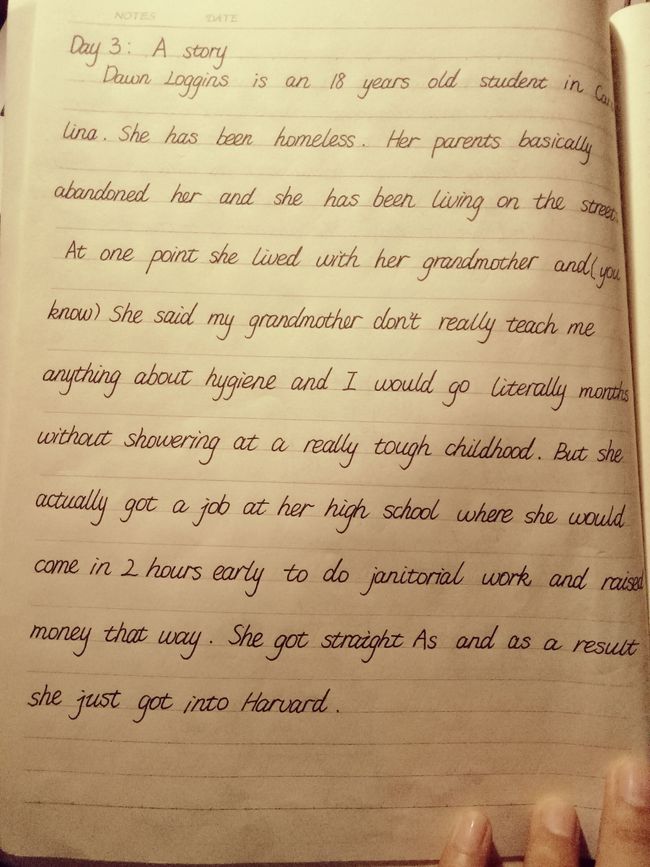 NOTES DATE
Day 3: A story
Dawn Loggins is an 18 years old student in Car
lina. She has been homeless. Her parents basically
abandoned her and she has been living on the street.
At one point she lived with her grandmother and (you
know) She said my grandmother don't really teach me
anything about hygiene and I would go literally months
without showering at a really tough childhood. But she
actually got a job at her high school where she would
come in 2 hours early to do janitorial work and raised
money that way. She got straight As and as a result
she just got into Harvard.